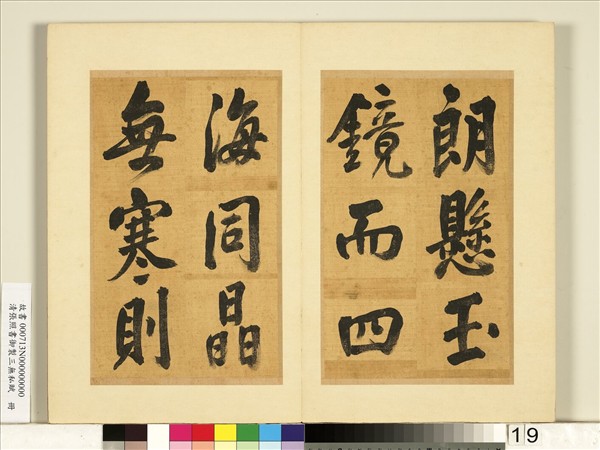 朗懸玉
鏡而四
海同晶
無寒則
故書 000713N000000000
清張照書御製三無私賦 冊
19